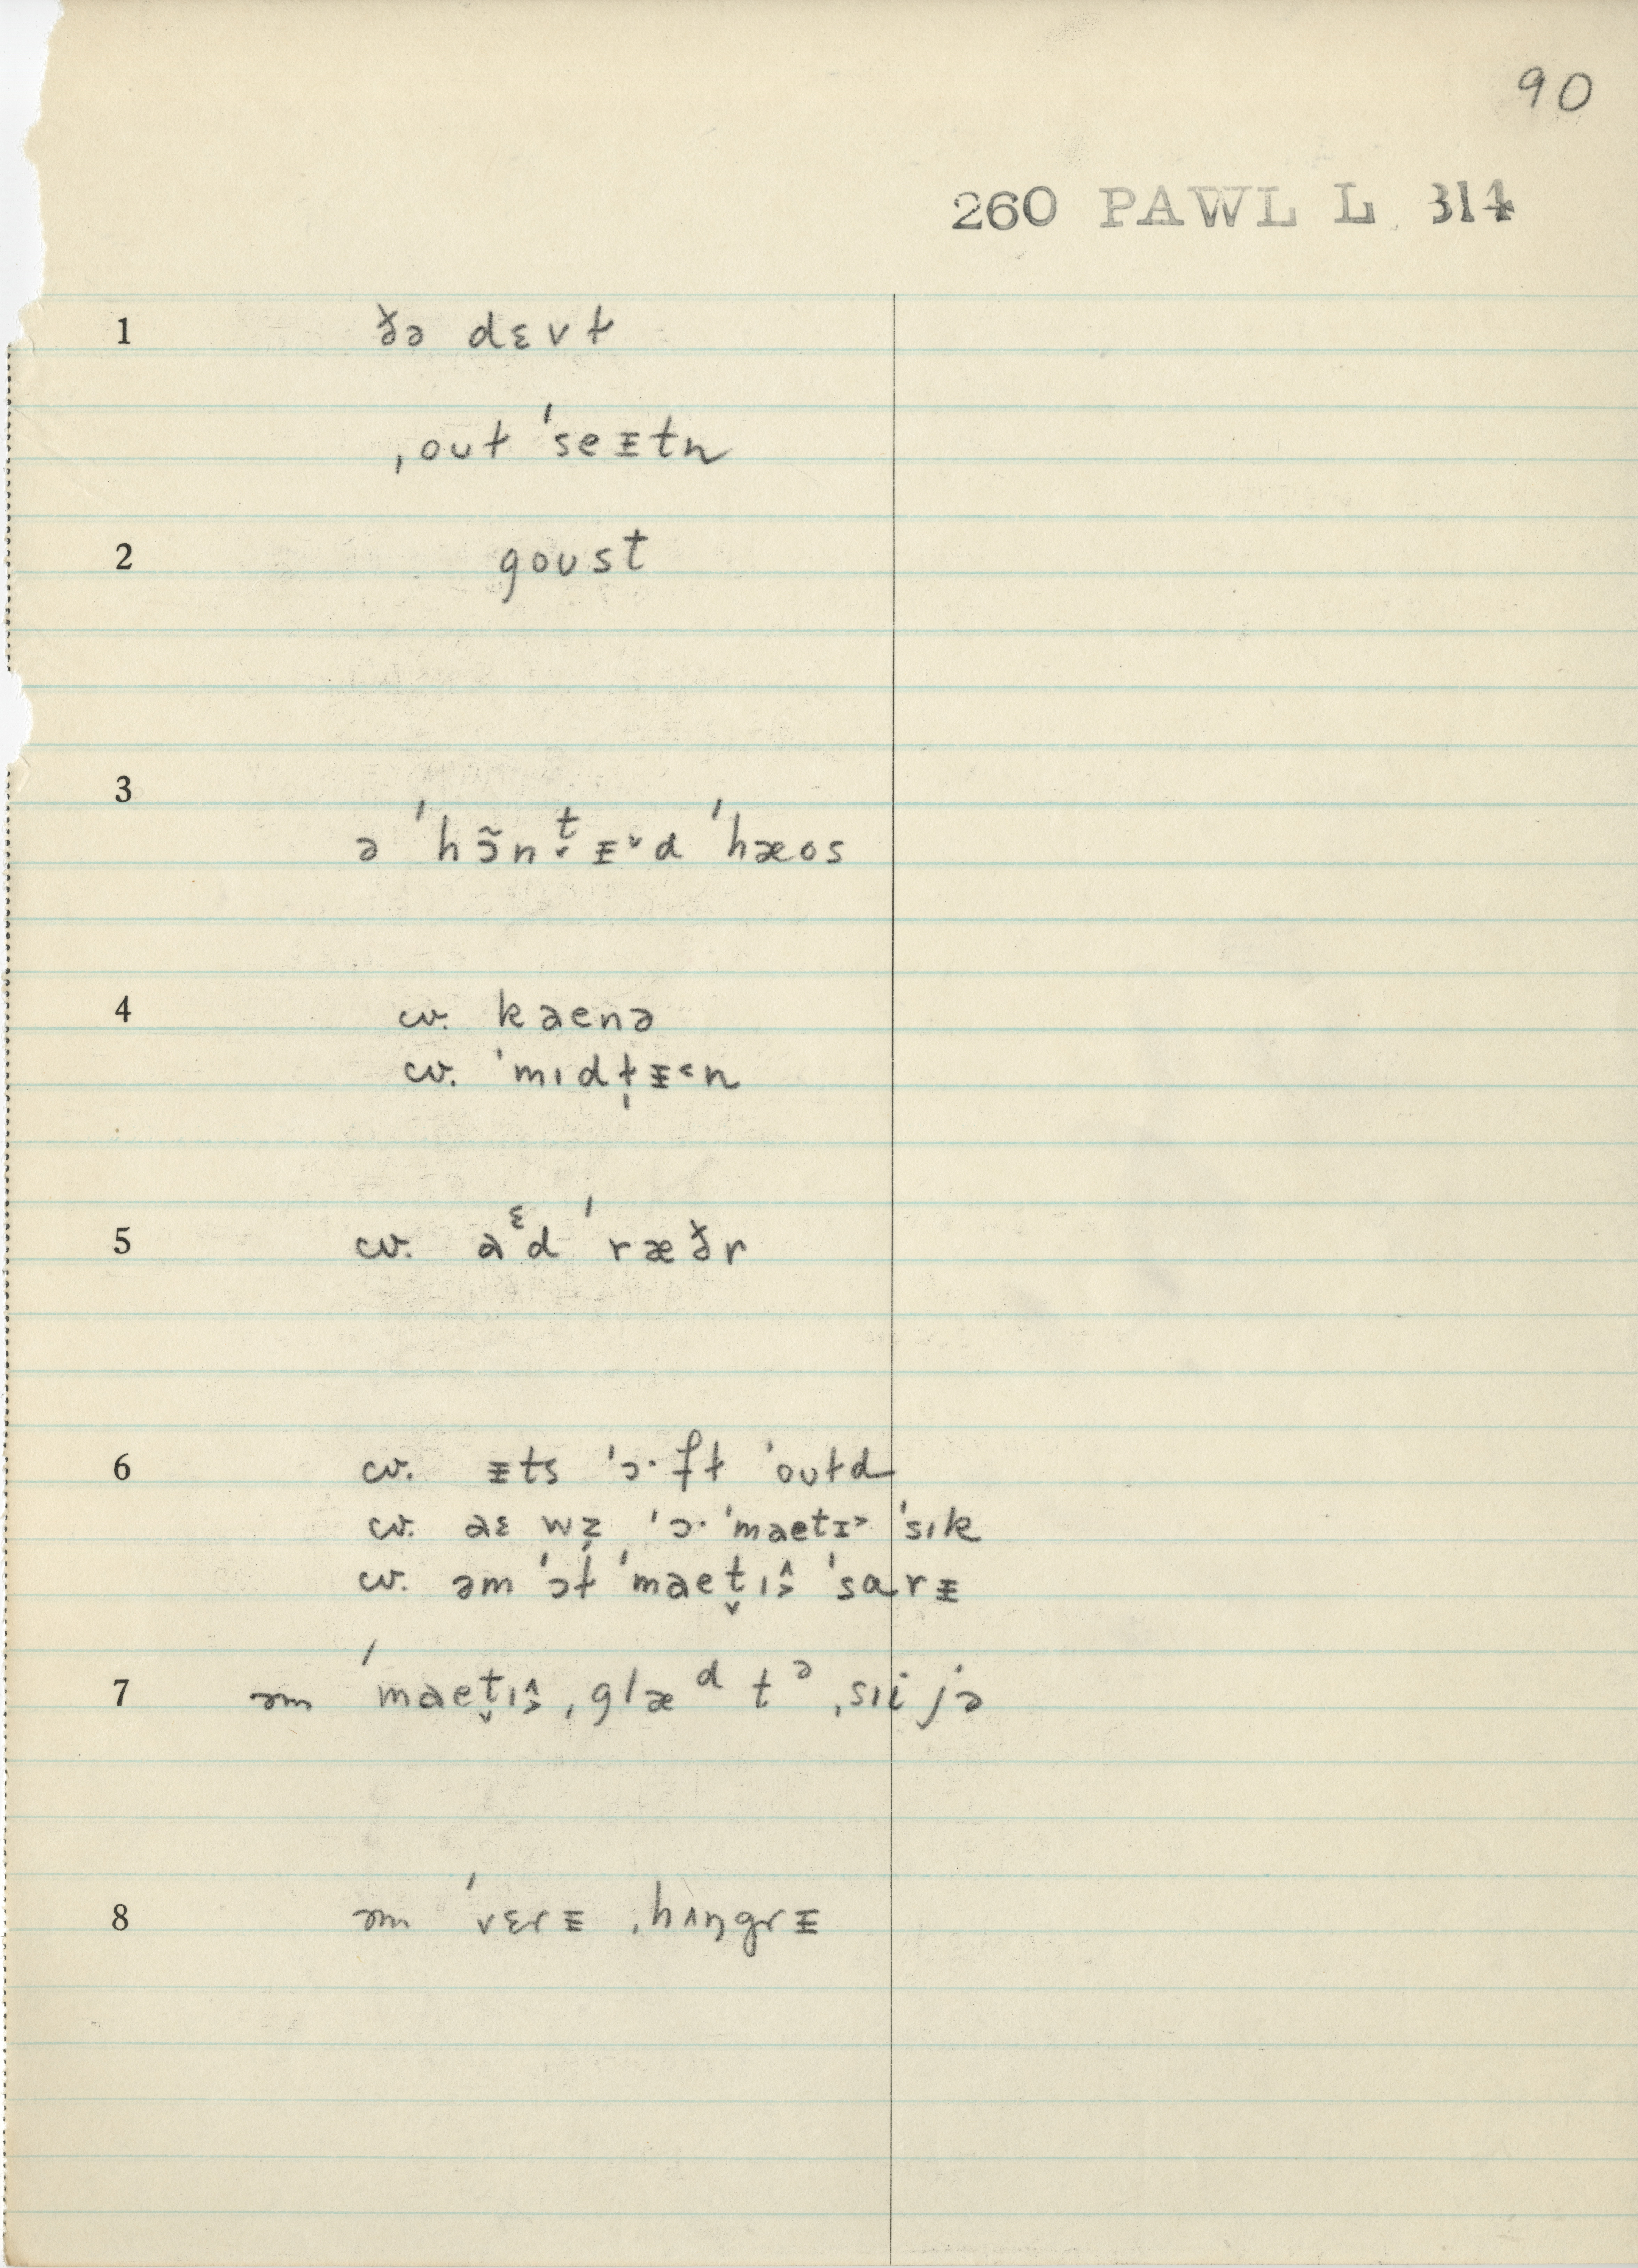 90
260 PAWL L 314
1 ðə dɛvɫ
ˌouɫ ˈseᵻtn
2 goust
3 ə ˈhɔ̃nt̬ᵻ˅d ˈhæos
4 cv. kaenə
cv. ˈmɪdɫ̩ᵻ˂n
5 cv. aᵋd ˈræðr
6 cv. ᵻts ˈɔ·fɫ ˈouɫd
cv. aɛ wz̩ ˈɔ· ˈmaetɪ˃ ˈsɪk
cv. əm ˈɔɫ ˈmaet̬ɪ˄˃ ˈsarᵻ
7 əm ˈmaet̬ɪ˄˃ ˌglæᵈ tᵊ ˌsɪi jə
8 əm ˈvɛrᵻ ˌhʌŋgrᵻ